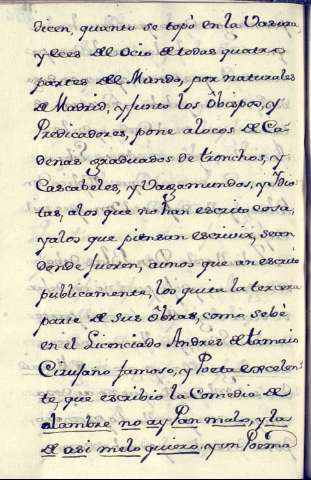 dicen, quanto se topò en la Vasura,
y eces del Ocio de todas quatro
partes del Mundo, por naturales
de Madrid, y junto los Obispos, y
Predicadores, pone a locos de Ca-
denas graduados de tronchos, y
Cascabeles, y Vagamundos, y Ydio-
tas, a los que no han escrito cosa,
y a los que piensan escrivir, sean
donde fueren, a unos que an escrito
publicamente, los quita la tercera
parte de sus Obras, como se bè
en el Licenciado Andres de tamaio
Cirujano famoso, y Poeta excelen-
te, que escribio la Comedia de
alambre no ay Pan malo, y la
de asi me lo quiero, y un Poema